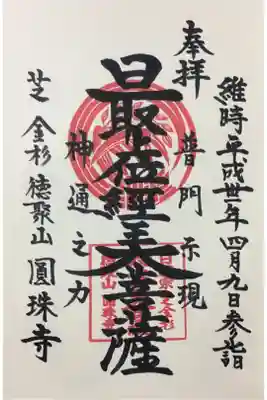 維時平成丗一年四月九日参詣
奉拝
普門示現
最上位經王大菩薩
神通之力
芝金杉徳聚山圓珠寺